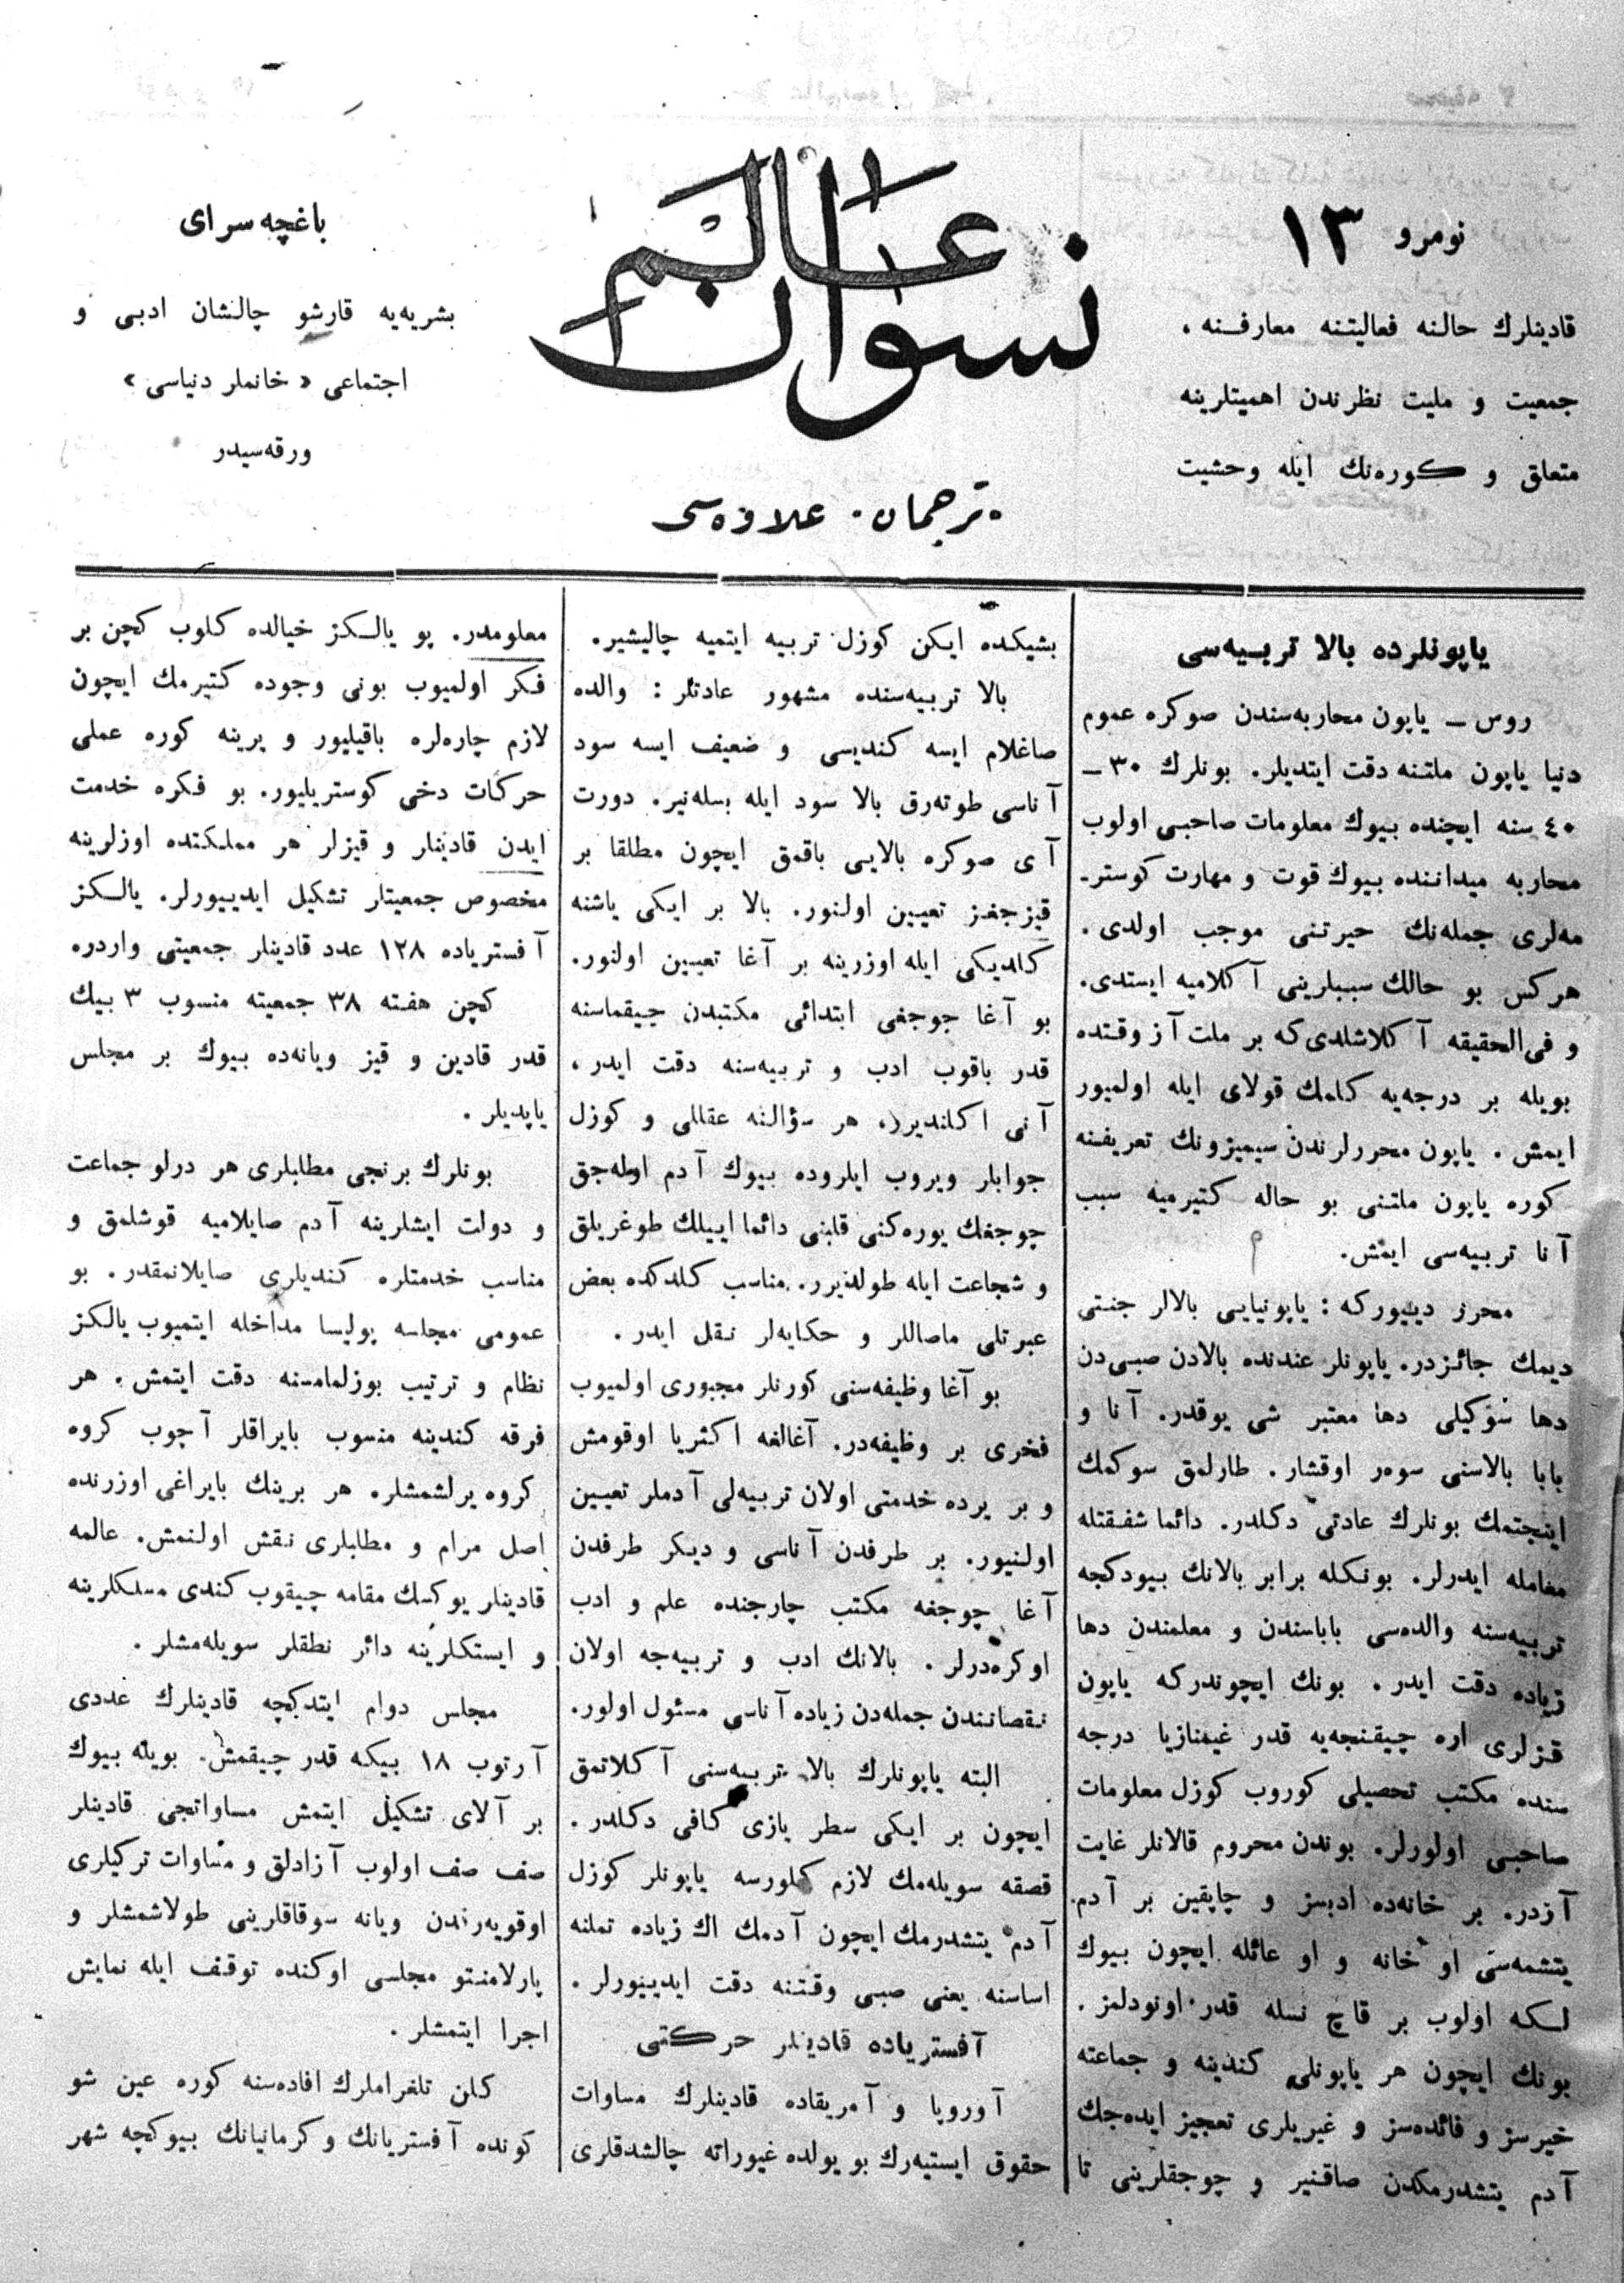 نومرو ١٣
قادینلرك حالنه فعالیتنه معارفنه ،
جمعیت و ملیت نظرندن اهمیتلرینه
متعلق و كوره‌نك ایله وحشیت
عالم نسوان
ترجمان علاوه‌سی
باغچه سرای
بشریه‌یه قارشو چالشان ادبی و
اجتماعی « خانملر دنیاسی »
ورقه‌سیدر
یاپونلرده بالا تربیه‌سی
روس ـ یاپون محاربه‌سندن صوكره عموم
دنیا یاپون ملتنه دقت ایتدیلر. بونلرك ٣٠ ـ
٤٠ سنه ایچنده بیوك معلومات صاحبی اولوب
محاربه میداننده بیوك قوت و مهارت كوستر-
مه‌لری جمله‌نك حیرتنی موجب اولدی.
هركس بو حالك سببلرینی آكلامیه ایستدی.
و فی‌الحقیقه آكلاشلدی‌كه بر ملت آز وقتده
بویله بر درجه‌یه كلمك قولای ایله اولمیور
ایمش . یاپون محررلرندن سیمیزونك تعریفنه
كوره یاپون ملتنی بو حاله كتیرمیه سبب
آنا تربیه‌سی ایمش.
محرر دییوركه : یاپونیایی بالالر جنتی
دیمك جائزدر. یاپونلر عندنده بالادن صبی‌دن
دها سوكیلی دها معتبر شی یوقدر. آنا و
بابا بالاسنی سوەر اوقشار. طارلمق سوكمك
اینجتمك بونلرك عادتی دكلدر. دائما شفقتله
معامله ایدرلر. بونكله برابر بالانك بیودكجه
تربیه‌سنه والده‌سی باباسندن و معلمندن دها
زیاده دقت ایدر. بونك ایچوندركه یاپون
قزلری اره چیقنجه‌یه قدر غیمنازیا درجه
سنده مكتب تحصیلی كوروب كوزل معلومات
صاحبی اولورلر. بوندن محروم قالانلر غایت
آزدر. بر خانه‌ده ادبسز و چاپقین بر آدم
یتشمه‌سی او خانه و او عائله ایچون بیوك
لكه اولوب بر قاچ نسله قدر اونودلمز.
بونك ایچون هر یاپونلی كندینه و جماعته
خیرسز و فائده‌سز و غیریلری تعجیز ایده‌جك
آدم یتشدرمكدن صاقنیر و چوجقلرینی تا
بشیكده ایكن كوزل تربیه ایتمیه چالیشیر.
بالا تربیه‌سنده مشهور عادتلر : والده
صاغلام ایسه كندیسی و ضعیف ایسه سود
آناسی طوته‌رق بالا سود ایله بسله‌نیر. دورت
آی صوكره بالایی باقمق ایچون مطلقا بر
قیزجغز تعیین اولنور. بالا بر ایكی یاشنه
كلدیكی ایله اوزرینه بر آغا تعیین اولنور.
بو آغا چوجغی ابتدائی مكتبدن چیقماسنه
قدر باقوب ادب و تربیه‌سنه دقت ایدر ،
آنی اكلندیر، هر سؤالنه عقللی و كوزل
جوابلر ویروب ایلروده بیوك آدم اوله‌جق
چوجغك یوره‌كنی قلبنی دائما اییلك طوغریلق
و شجاعت ایله طولدیرر. مناسب كلدكده بعض
عبرتلی ماصاللر و حكایه‌لر نقل ایدر.
بو آغا وظیفه‌سنی كورنلر مجبوری اولمیوب
فخری بر وظیفه‌در. آغالغه اكثریا اوقومش
و بر یرده خدمتی اولان تربیه‌لی آدملر تعیین
اولنیور. بر طرفدن آناسی و دیكر طرفدن
آغا چوجغه مكتب چارجنده علم و ادب
اوكره‌درلر . بالانك ادب و تربیه‌جه اولان
نقصانندن جمله‌دن زیاده آناسی مسئول اولور.
البته یاپونلرك بالا تربیه‌سنی آكلاتمق
ایچون بر ایكی سطر یازی كافی دكلدر.
قصقه سویله‌مك لازم كلورسه یاپونلر كوزل
آدم یتشدرمك ایچون آدمك اك زیاده تملنه
اساسنه یعنی صبی وقتنه دقت ایدییورلر.
آفستریاده قادینلر حركتی
آوروپا و آمریقاده قادینلرك مساوات
حقوق ایستیه‌رك بو یولده غیورانه چالشدقلری
معلومدر. پو یالكز خیالده كلوب كچن بر
فكر اولمیوب بونی وجوده كتیرمك ایچون
لازم چاره‌لره باقیلیور و یرینه كوره عملی
حركات دخی كوستریلیور. بو فكره خدمت
ایدن قادینلر و قیزلر هر مملكتده اوزلرینه
مخصوص جمعیتلر تشكیل ایدییورلر. یالكز
آفستریاده ١٢٨ عدد قادینلر جمعیتی واردر.
كچن هفته ٣٨ جمعیته منسوب ٣ بیك
قدر قادین و قیز ویانه‌ده بیوك بر مجلس
یاپدیلر .
بونلرك برنجی مطلبلری هر درلو جماعت
و دولت ایشلرینه آدم صایلامیه قوشلمق و
مناسب خدمتلره كندیلری صایلانمقدر. بو
عمومی مجلسه پولیسا مداخله ایتمیوب یالكز
نظام و ترتیب بوزلمامسنه دقت ایتمش. هر
فرقه كندینه منسوب بایراقلر آچوب كروه
كروه یرلشمشلر. هر برینك بایراغی اوزرنده
اصل مرام و مطلبلری نقش اولنمش. عالمه
قادینلر یوكسك مقامه چیقوب كندی مسلكلرینه
و ایستكلرینه دائر نطقلر سویله‌مشلر.
مجلس دوام ایتدكچه قادینلرك عددی
آرتوب ١٨ بیكه قدر چیقمش. بویله بیوك
بر آلای تشكیل ایتمش مساواتجی قادینلر
صف صف اولوب آزادلق و مساوات تركیلری
اوقویه‌رندن ویانه سوقاقلرینی طولاشمشلر و
پارلامنتو مجلسی اوكنده توقف ایله نمایش
اجرا ایتمشلر.
كلن تلغراملرك افاده‌سنه كوره عین شو
كونده آفستریانك و كرمانیانك بیوكجه شهر